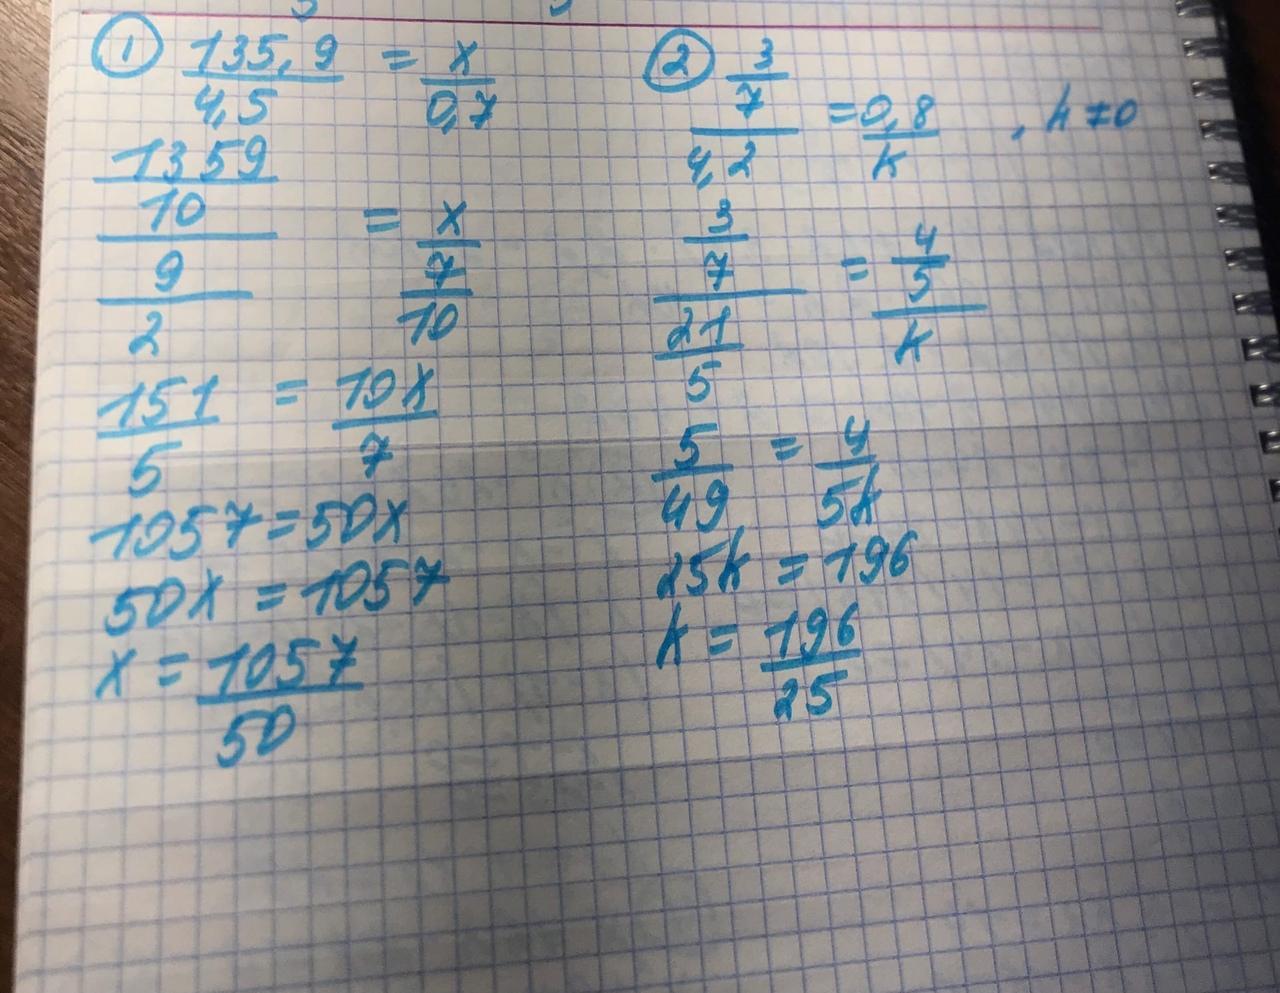 ① 135,9/4,5 = x/0,7
(1359/10)/(9/2) = x/(7/10)
151/5 = 10x/7
1057=50x
50x = 1057
x = 1057/50
② (3/7)/4,2 = 0,8/k , k≠0
(3/7)/(21/5) = (4/5)/k
5/49 = 4/5k
25k = 196
k = 196/25